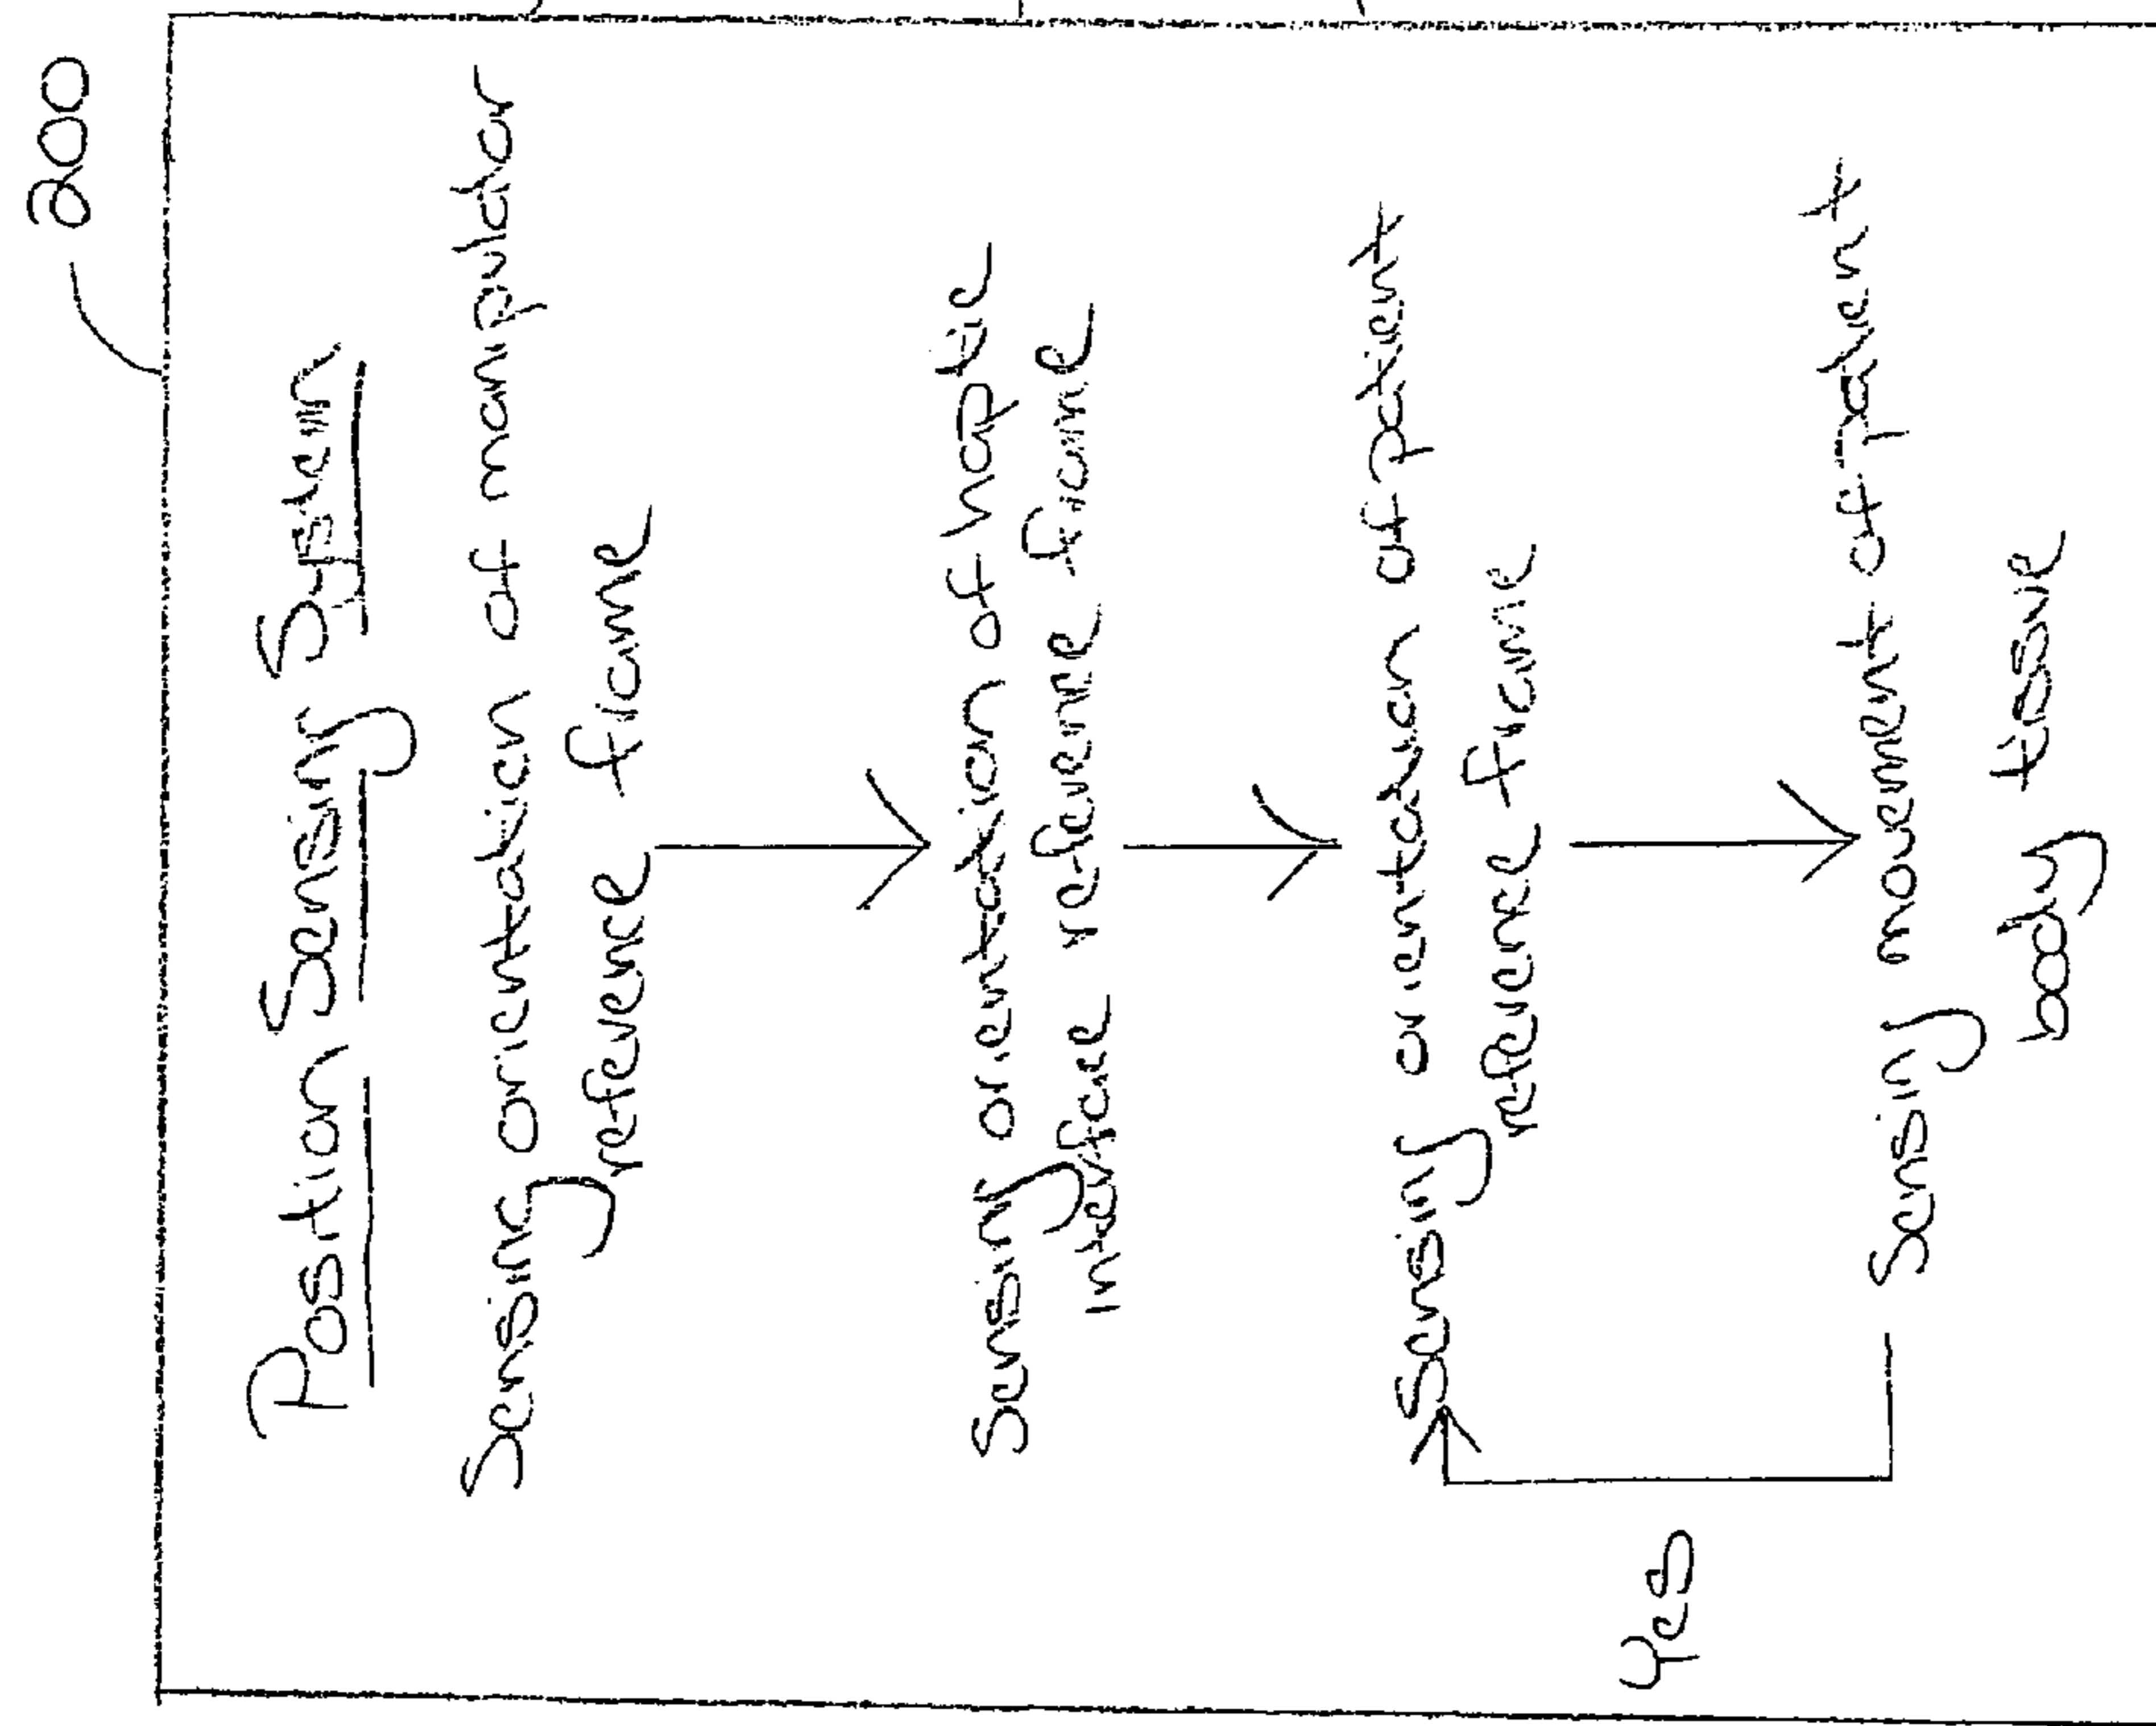 200
Position Sensing System
Sensing orientation of manipulator
reference frame
Sensing orientation of haptic
interface reference frame
Sensing orientation of patient
reference frame
Sensing movement of patient
body tissue
Yes